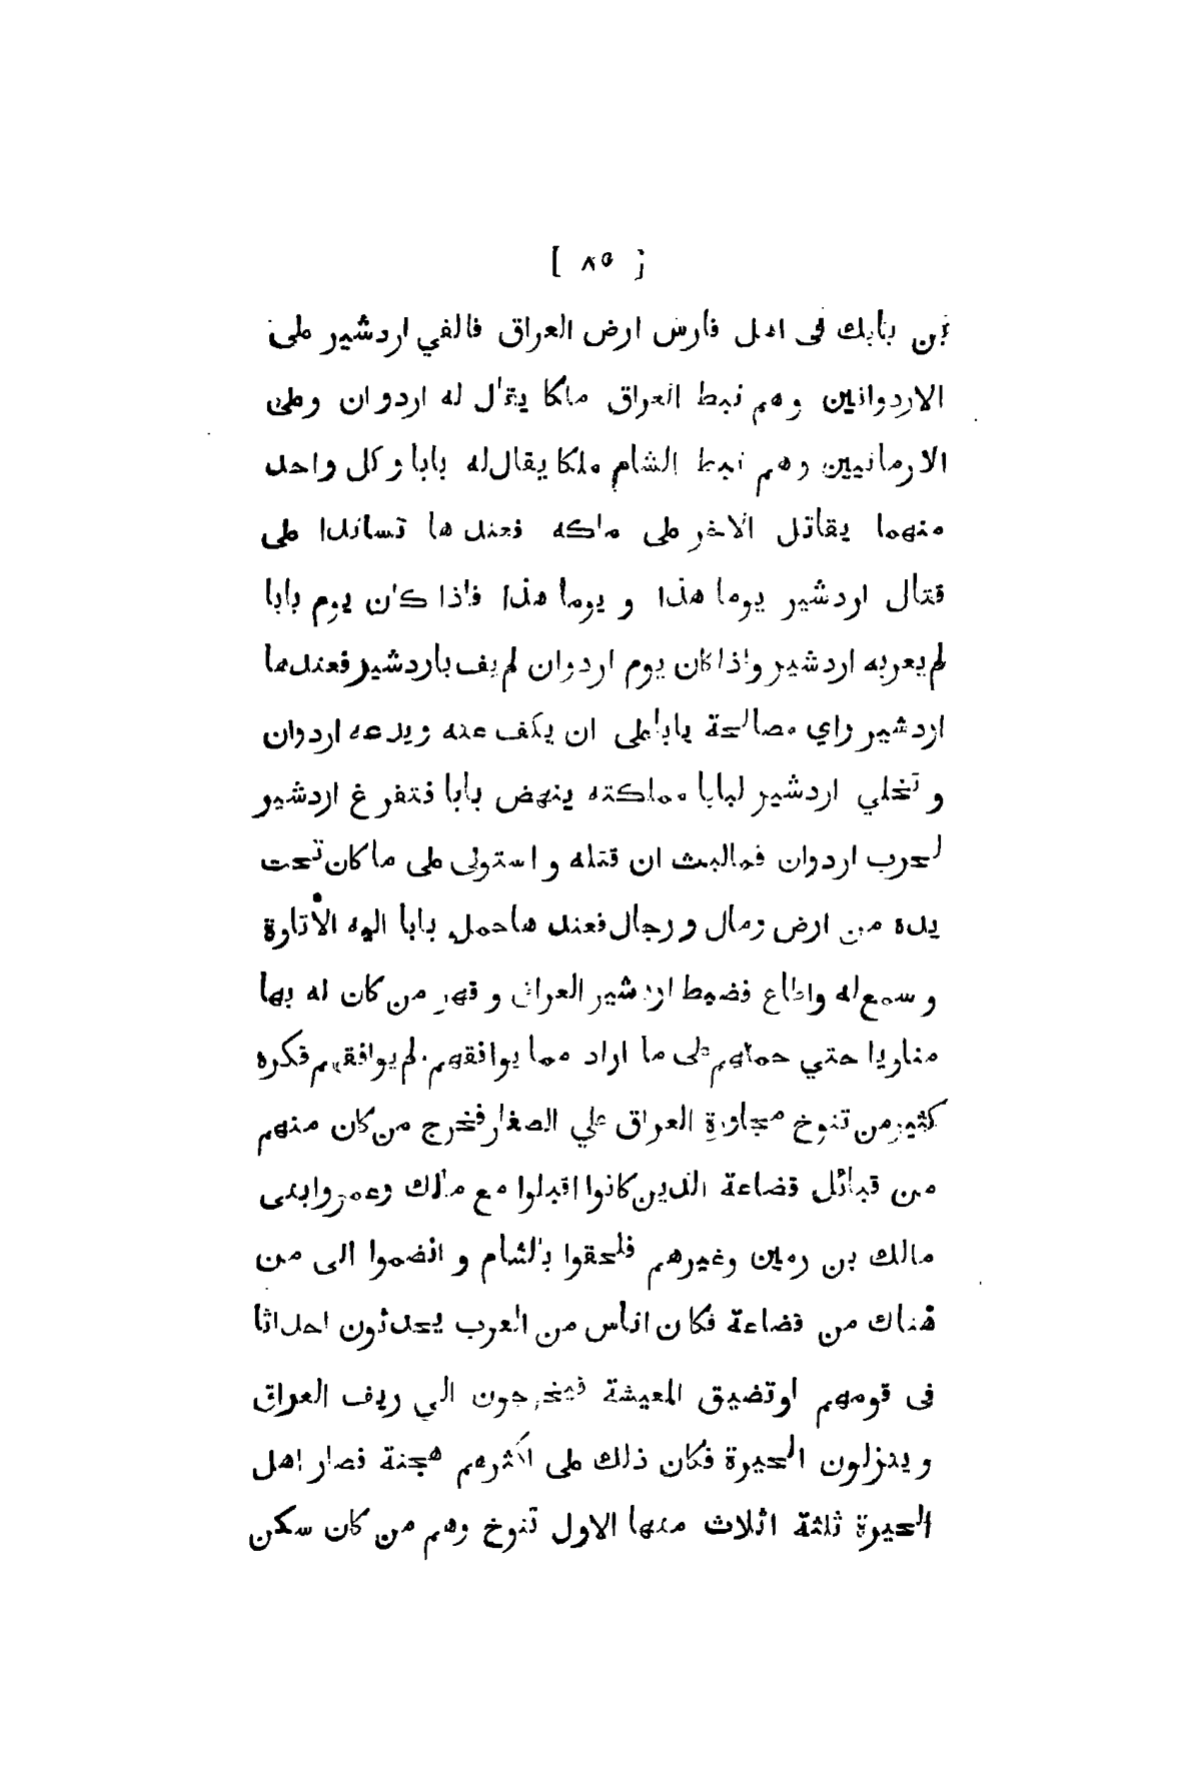 [ ٨٥ ]
بن بابك فى اهل فارس ارض العراق فالفي اردشير على
الاردوانيين وهم نبط العراق ملكا يقال له اردوان وعلى
الارمانيين وهم نبط الشام ملكا يقال له بابا وكل واحد
منهما يقاتل الآخر على ملكه فعند ها تساندا على
قتال اردشير يوما هذا و يوما هذا فاذا كان يوم بابا
لم يعربه اردشير واذا كان يوم اردوان لم يف باردشير فعندها
اردشير راي مصالحة يابا على ان يكف عنه ويدعه اردوان
و تخلي اردشير لبابا مملكته ينهض بابا فتفر غ اردشير
لحرب اردوان فمالبث ان قتله و استولى على ماكان تحت
يده من ارض ومال و رجال فعند هاحمل بابا اليه الأتارة
و سمع له واطاع فضبط اردشير العراق و قهر من كان له بها
مناويا حتي حملهم على ما اراد مما يوافقهم لم يوافقهم فكره
كثير من تنوخ مجاورة العراق علي الصغار فخرج من كان منهم
من قبائل قضاعة الذين كانوا اقبلوا مع مالك وعمرو ابنى
مالك بن رمين وغيرهم فلحقوا بالشام و انضموا الى من
هناك من قضاعة فكان اناس من العرب يحدثون احداثا
فى قومهم اوتضيق المعيشة فيخرجون الي ريف العراق
و ينزلون الحيرة فكان ذلك على اكثرهم هجنة فصار اهل
الحيرة ثلثة اثلاث منها الاول تنوخ وهم من كان سكن